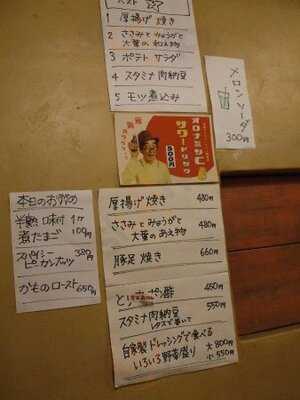 1 厚揚げ焼き
2 ささみとみょうがと
大葉の和え物
3 ポテトサラダ
4 スタミナ肉納豆
5 モツ煮込み
メロンソーダ
300円
オロナミンC
サワードリンク
500円
本日のお惣菜
半熟味付 1ヶ
煮たまご 100円
スパイシー 380円
ピーカンナッツ
かものロースト 650円
厚揚げ焼き 480円
ささみとみょうがと
大葉のあえ物 480円
豚足焼き 660円
ポン酢 450円
スタミナ肉納豆 550円
レタスで巻いて
自家製ドレッシングで食べる
いろいろ野菜盛り 大 800円
小 550円